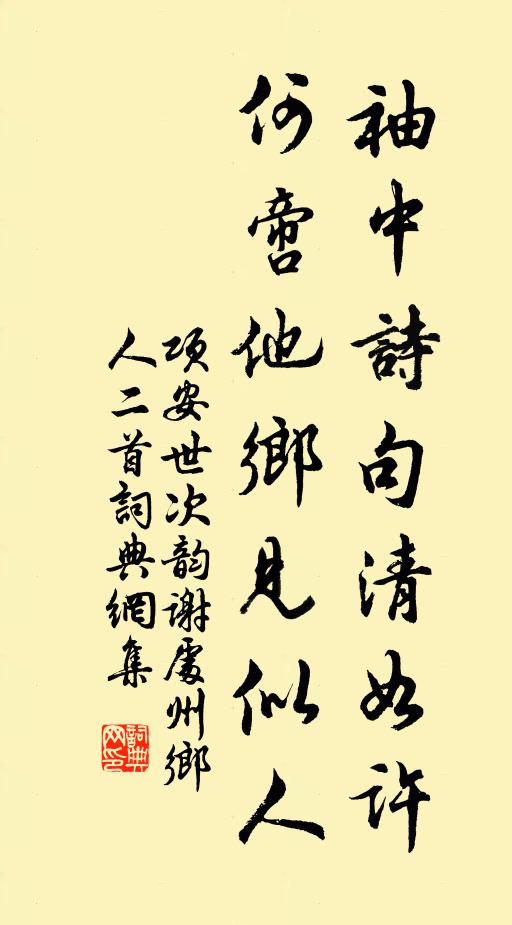 袖中詩句清如許
何啻他鄉見似人
項安世次韵謝處州鄉
人二首詞典網集
詞典网印